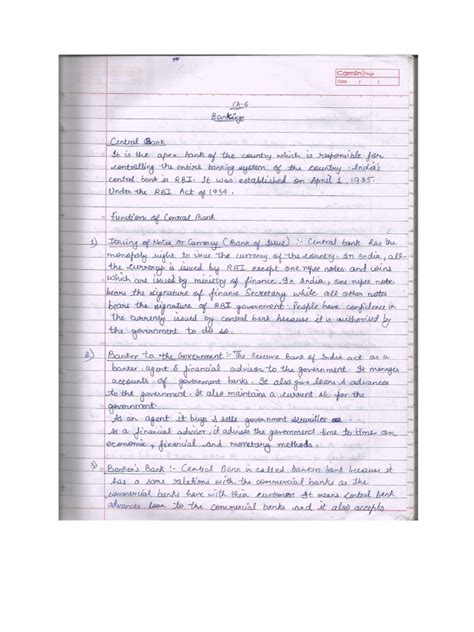 Camlin Page
Date / /
CA-6
Banking
Central Bank
It is the apex bank of the country which is responsible for
controlling the entire banking system of the country. India's
central bank is RBI. It was established on April 1, 1935.
Under the RBI Act of 1934.
Functions of Central Bank
1) Issuing of Notes or Currency (Bank of Issue) :- Central bank has the
monopoly right to issue the currency of the country. In India, all
the currency is issued by RBI except one rupee notes and coins
which are issued by ministry of finance. In India, one rupee note
bears the signature of finance Secretary while all other notes
bears the signature of RBI government. People have confidence in
the currency issued by central bank because it is authorised by
the government to do so.
2) Banker to the Government :- The Reserve Bank of India act as a
banker, agent & financial advisor to the government. It manages
accounts of government banks. It also give loans & advances
to the government. It also maintains a current a/c for the
government.
As an agent it buys & sells government securities
As a financial advisor, it advises the government time to time on
economic, financial and monetary methods.
3) Banker's Bank :- Central Bank is called bankers bank because it
has a same relations with the commercial banks as the
commercial banks have with their customers. It means central bank
advances loan to the commercial banks and it also accepts